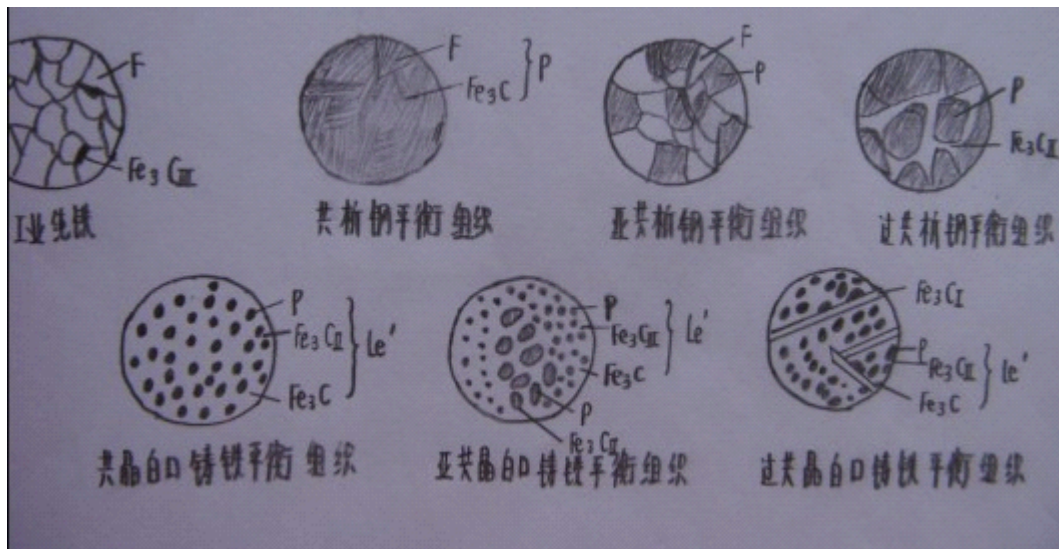 F
Fe₃CⅢ
工业纯铁
F
Fe₃C
P
共析钢平衡组织
F
P
亚共析钢平衡组织
P
Fe₃CⅡ
过共析钢平衡组织
P
Fe₃CⅡ
Fe₃C
Le'
共晶白口铸铁平衡组织
P
Fe₃CⅡ
Fe₃C
Le'
P
Fe₃CⅡ
亚共晶白口铸铁平衡组织
Fe₃CⅠ
P
Fe₃CⅡ
Fe₃C
Le'
过共晶白口铸铁平衡组织